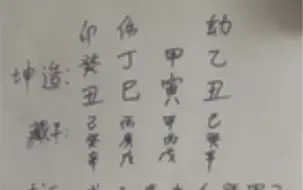 印 伤 劫
坤造: 癸 丁 甲 乙
丑 巳 寅 丑
藏干: 己 丙 甲 己
癸 庚 丙 癸
辛 戊 戊 辛